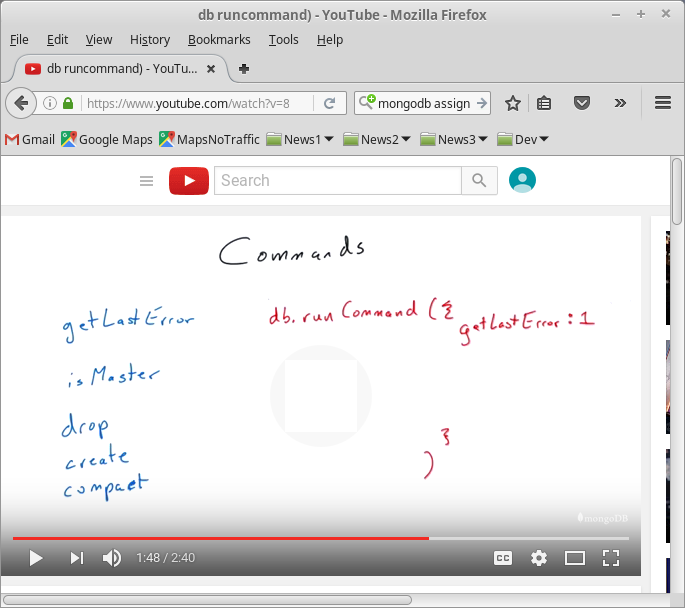 db runcommand) - YouTube - Mozilla Firefox
File Edit View History Bookmarks Tools Help
db runcommand) - YouTu...
https://www.youtube.com/watch?v=8 mongodb assign
Gmail Google Maps MapsNoTraffic News1 News2 News3 Dev
Search
Commands
getLastError db.runCommand ({ getLastError : 1
isMaster
drop
}
create
)
compact
mongoDB
1:48 / 2:40 CC